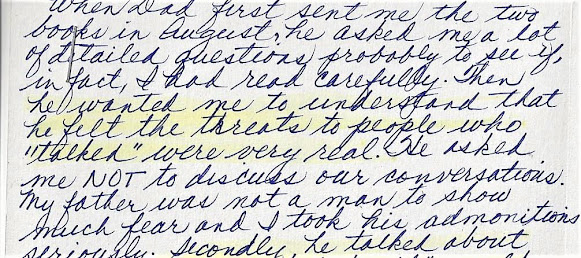 When Dad first sent me the two
books in August, he asked me a lot
of detailed questions, probably to see if,
in fact, I had read carefully. Then
he wanted me to understand that
he felt the threats to people who
"talked" were very real. He asked
me NOT to discuss our conversations.
My father was not a man to show
much fear and I took his admonitions
seriously. Secondly, he talked about